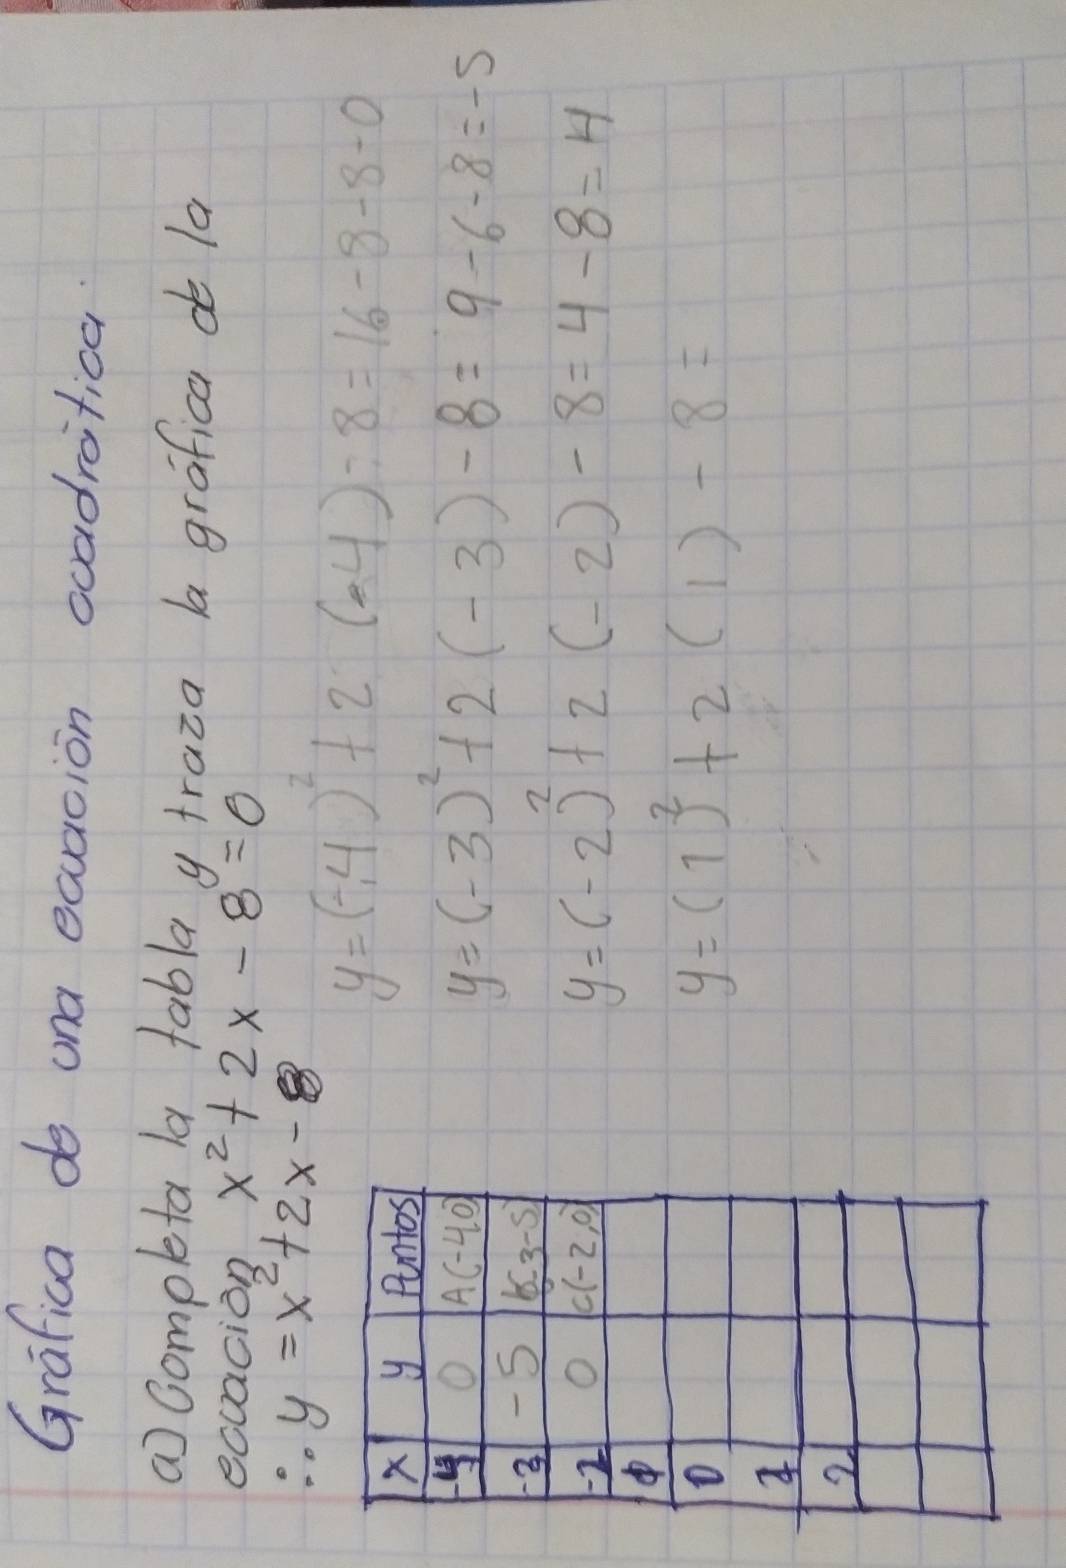 Gráfica de una ecuación cuadrática.
a) Completa la tabla y traza la gráfica de la
ecuación x² + 2x - 8 = 0
∴ y = x² + 2x - 8
x y Puntos
-4 0 A(-4,0)
-3 -5 B(-3-5)
-2 0 C(-2,0)
0
1
2
y = (-4)² + 2 (-4) - 8 = 16 - 8 - 8 - 0
y = (-3)² + 2 (-3) - 8 = 9 - 6 - 8 = -5
y = (-2)² + 2 (-2) - 8 = 4 - 8 = 4
y = (1)² + 2 (1) - 8 =